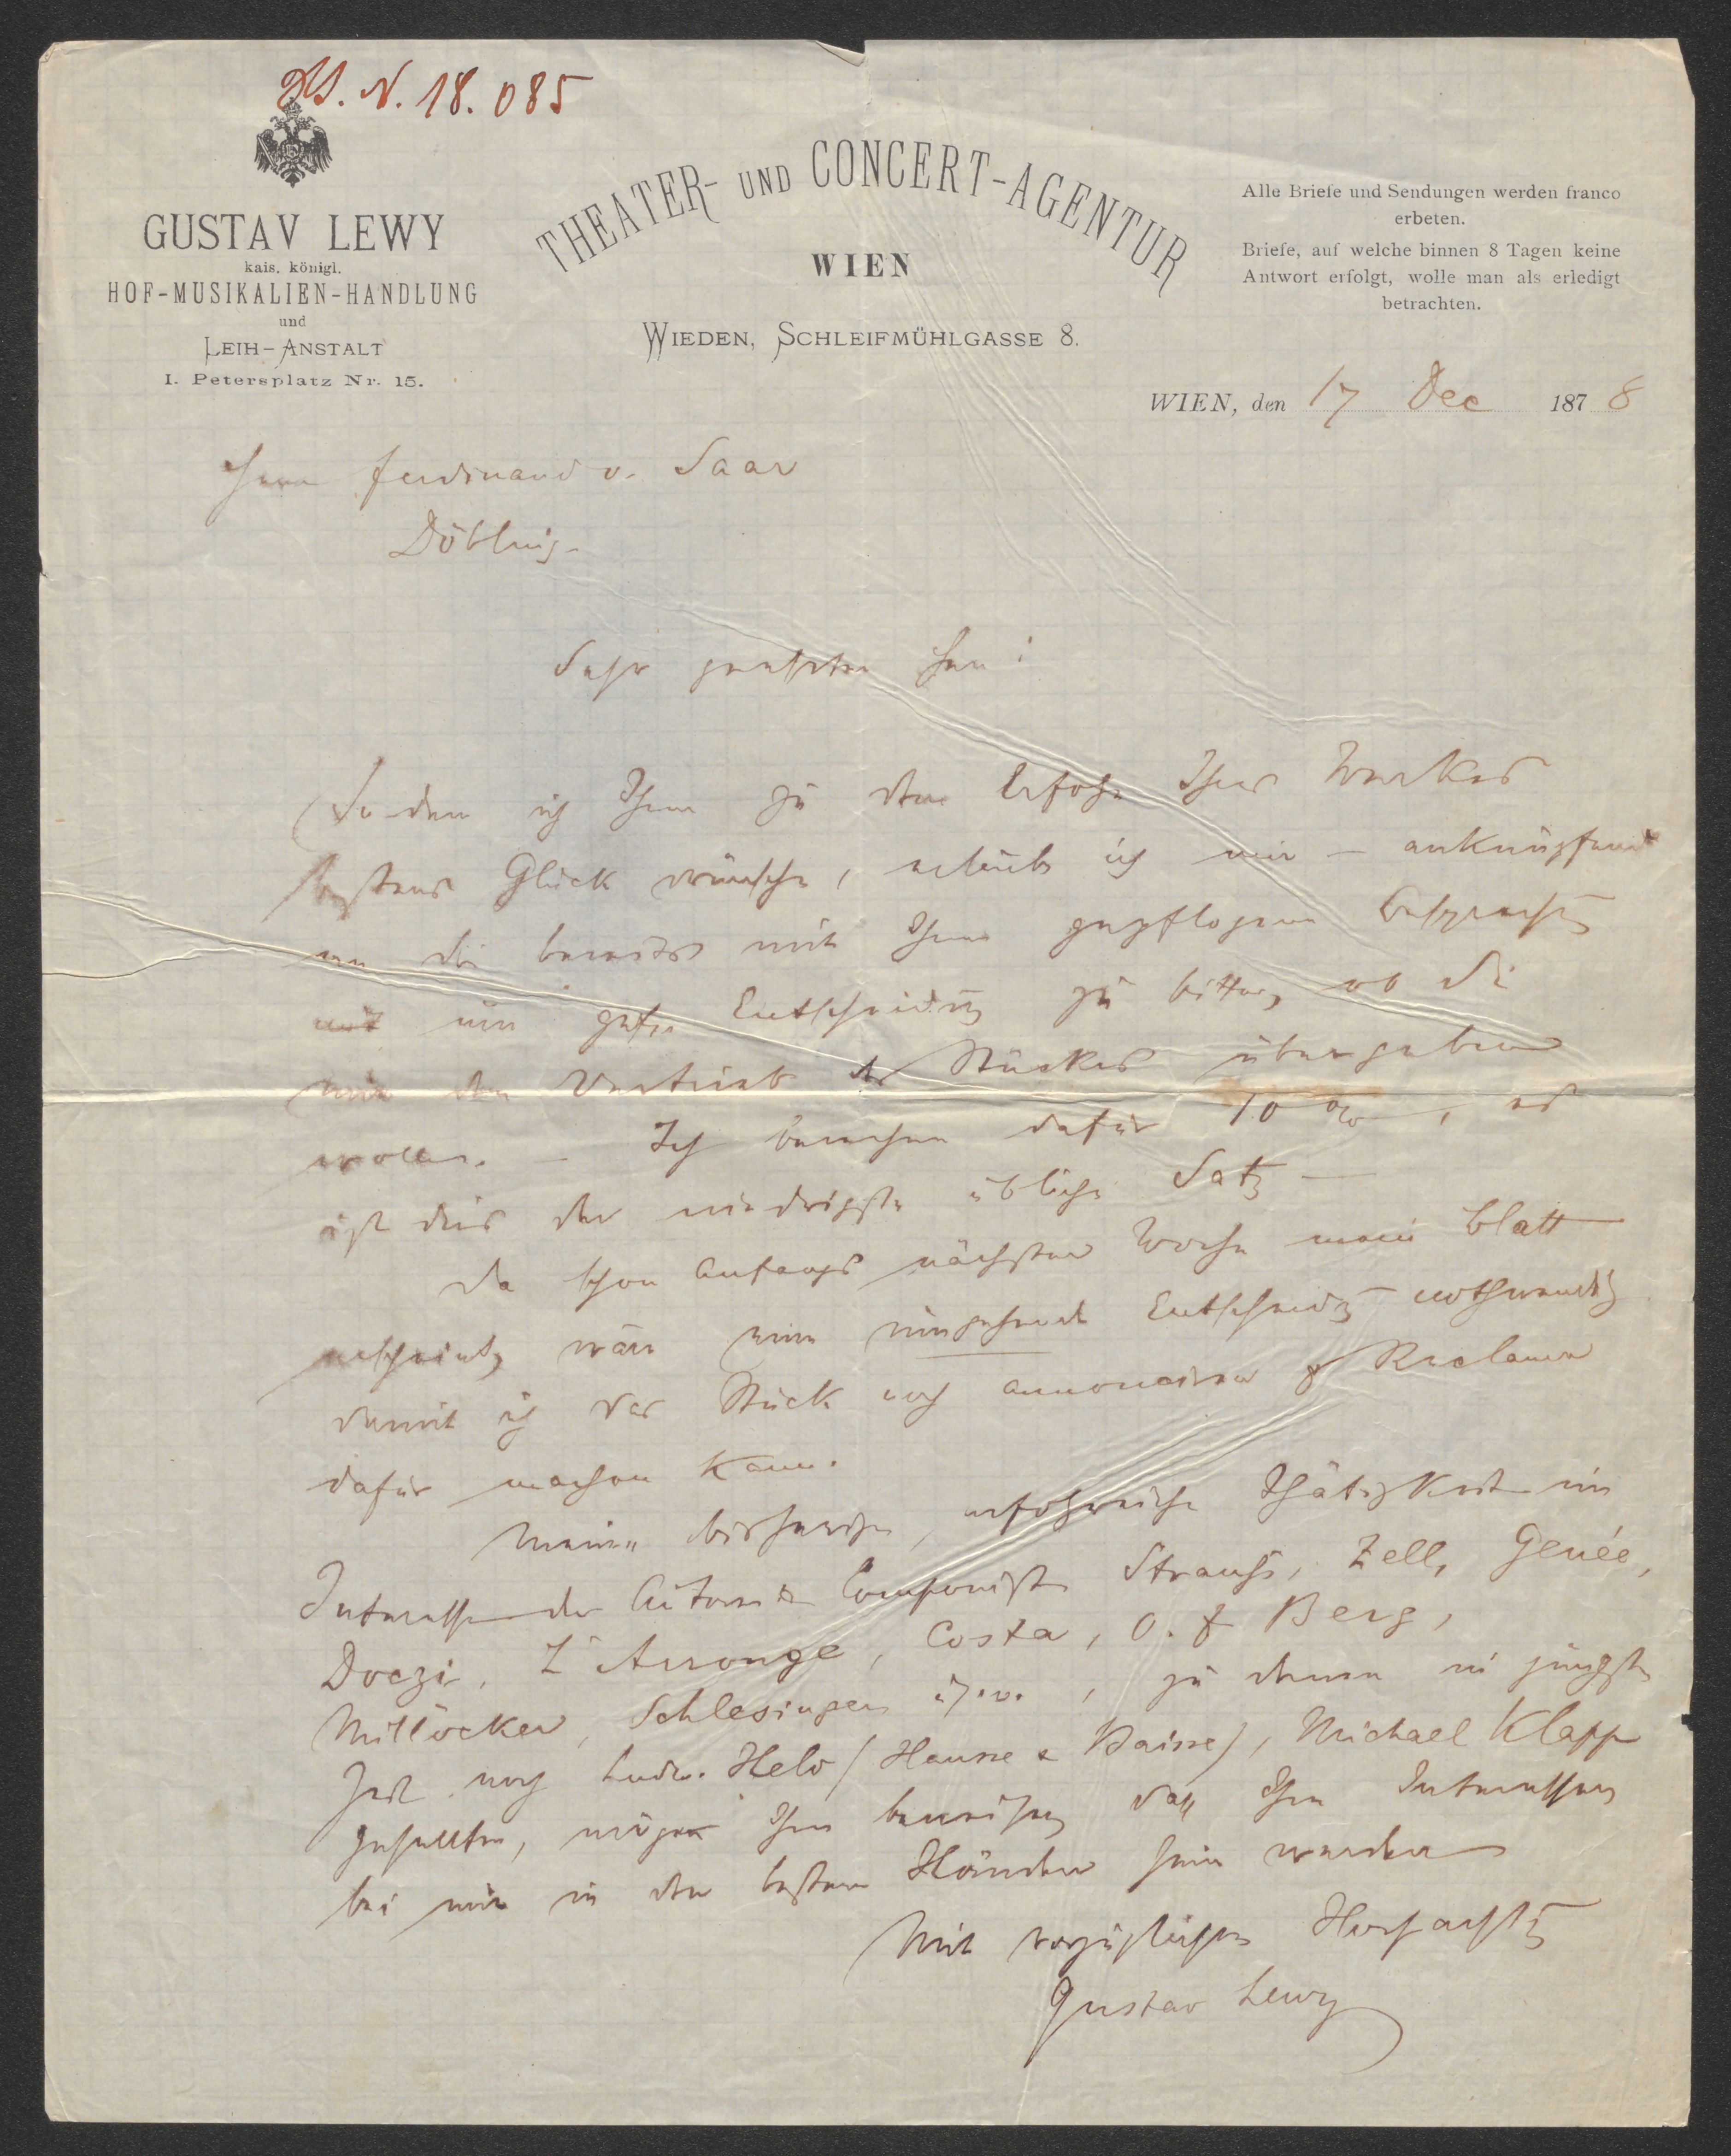 H.I.N. 18.085
GUSTAV LEWY
kais. königl.
HOF-MUSIKALIEN-HANDLUNG
und
LEIH-ANSTALT
I. Petersplatz Nr. 15.
THEATER- UND CONCERT-AGENTUR
WIEN
WIEDEN, SCHLEIFMÜHLGASSE 8.
Alle Briefe und Sendungen werden franco
erbeten.
Briefe, auf welche binnen 8 Tagen keine
Antwort erfolgt, wolle man als erledigt
betrachten.
WIEN, den 17 Dec 1878
Herrn Ferdinand v. Saar
Döbling.
Sehr geehrter Herr!
Indem ich Ihnen zu dem Erfolge Ihres Werkes
bestens Glück wünsche, erlaube ich mir – anknüpfend
an die bereits mit Ihnen gepflogene Besprechung
um Entscheidung zu bitten, ob Sie
mir den Vertrieb des Stückes übergeben
wollen. – Ich berechne dafür 10 %, es
ist dies der niedrigste übliche Satz –
Da schon Anfangs nächster Woche mein Blatt
erscheint, wäre eine umgehende Entscheidung nothwendig
damit ich das Stück noch annonciren & Reclame
dafür machen kann.
Meine bisherige, erfolgreiche Thätigkeit im
Interesse der Autoren & Componisten Strauß, Zell, Genée,
Doczi, L'Arronge, Costa, O. F Berg,
Millöcker, Schlesinger u.s.w., zu denen in jüngster
Zeit noch Ludw. Held (Hausse & Baisse), Michael Klapp
gesellten, mögen Ihnen beweisen daß Ihre Interessen
bei mir in den besten Händen sein werden
Mit vorzüglicher Hochachtung
Gustav Lewy